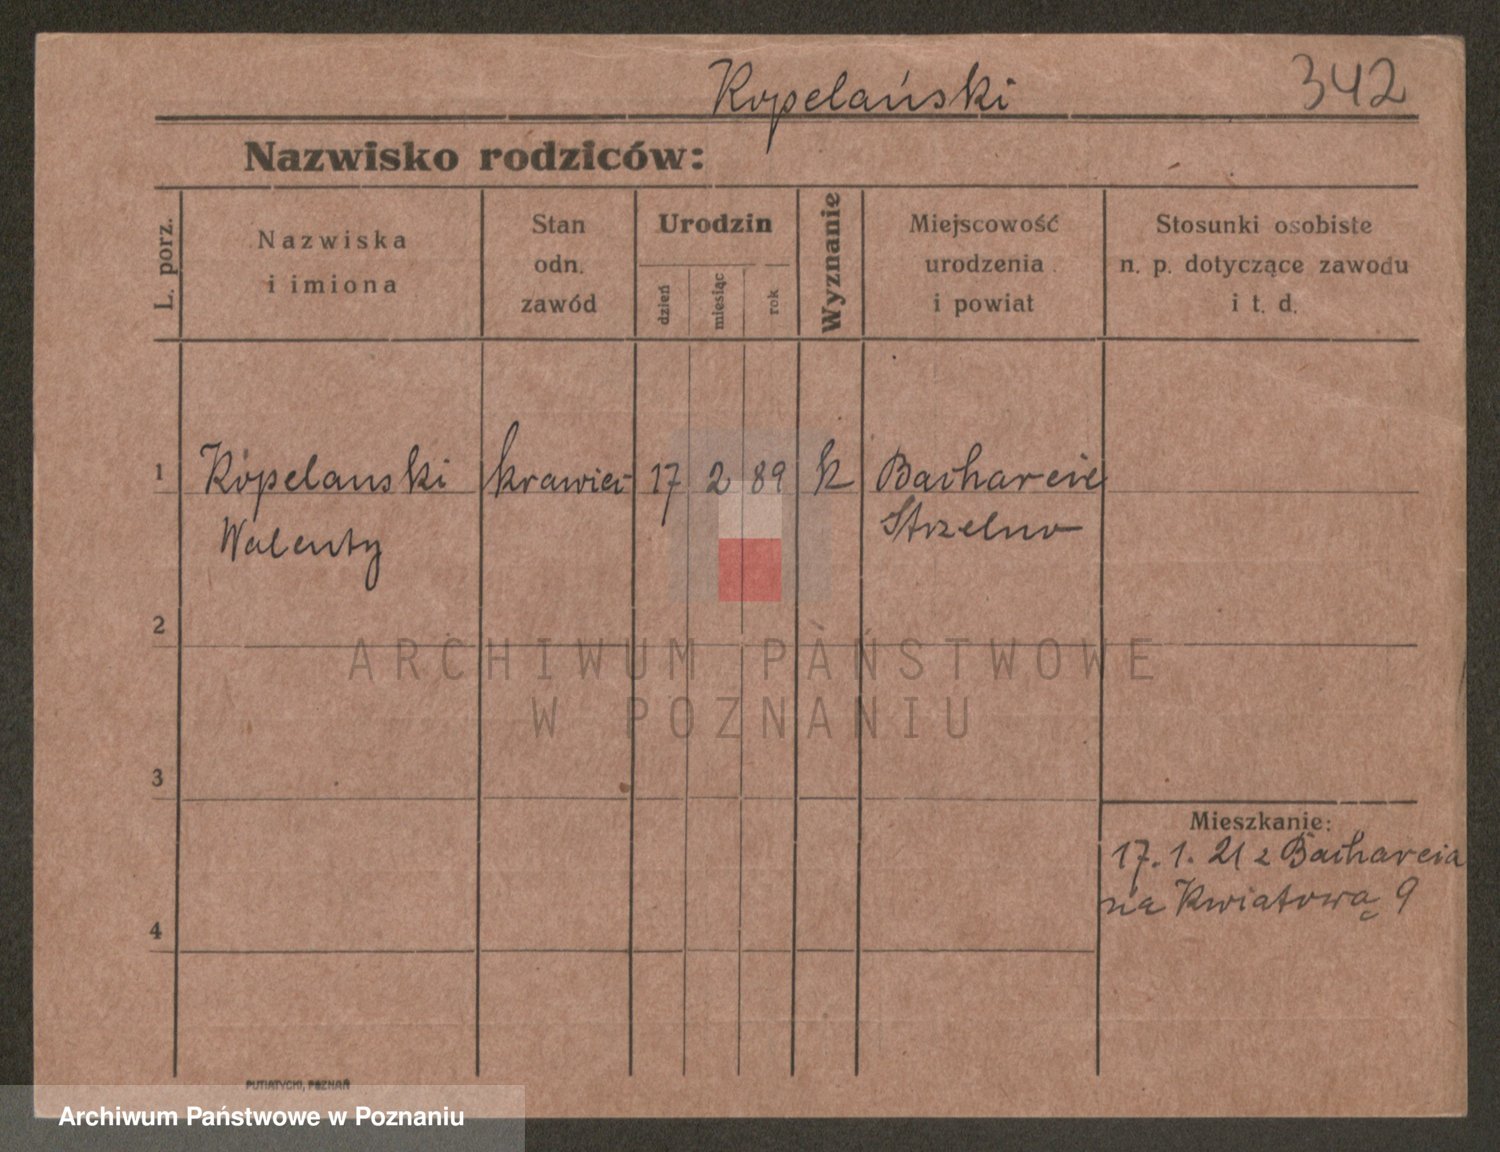 Kopelański
342
Nazwisko rodziców:
L. porz.
Nazwiska
i imiona
Stan
odn.
zawód
Urodzin
dzień
miesiąc
rok
Wyznanie
Miejscowość
urodzenia
i powiat
Stosunki osobiste
n. p. dotyczące zawodu
i t. d.
1 Kopelanski krawiec 17 2 89 k Bacharcie
Walenty Strzelno
2
ARCHIWUM PAŃSTWOWE
W POZNANIU
3
Mieszkanie:
17. 1. 21 z Bacharcia
na Kwiatową 9
4
PUTIATYCKI, POZNAŃ
Archiwum Państwowe w Poznaniu